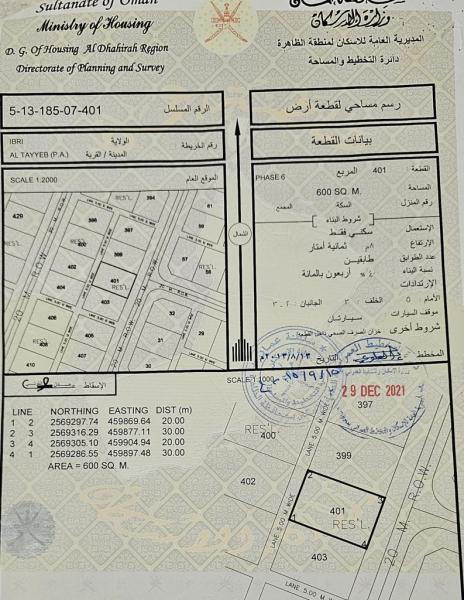 Sultanate of Oman
Ministry of Housing
D. G. Of Housing Al Dhahirah Region
Directorate of Planning and Survey
وزارة الإسكان
المديرية العامة للاسكان لمنطقة الظاهرة
دائرة التخطيط والمساحة
5-13-185-07-401 الرقم المسلسل
رسم مساحي لقطعة أرض
IBRI الولاية
AL TAYYEB (P.A.) المدينة / القرية
رقم الخريطة
بيانات القطعة
SCALE 1:2000 الموقع العام
PHASE 6
القطعة : 401 المربع
المساحة 600 SQ. M.
رقم المنزل السكة المجمع
شروط البناء
الإستعمال سكني فقط
الإرتفاع ٨م ثمانية أمتار
عدد الطوابق طابقين
نسبة البناء ٤٠% أربعون بالمائة
الإرتدادات
الأمام : ٥ الخلف : ٣ الجانبان : ٢،٣
موقف السيارات سيارتان
شروط أخرى خزان الصرف الصحي داخل القطعة
المخطط التاريخ
الشمال
429
394
RES'L.
396
397
400
399
402
401
RES'L.
404
403
406
405
408
407
410
20 M. R.O.W.
61
59
57
58
33
31
32
29
30
27
28
الإسقاط
SCALE 1:1000
29 DEC 2021
LINE NORTHING EASTING DIST (m)
1 2 2569297.74 459869.64 20.00
2 3 2569316.29 459877.11 30.00
3 4 2569305.10 459904.94 20.00
4 1 2569286.55 459897.48 30.00
AREA = 600 SQ. M.
397
400
RES'L.
LANE 5.00 M. WIDE
399
402
401
RES'L.
403
404
LANE 5.00 M. WIDE
20 M. R.O.W.